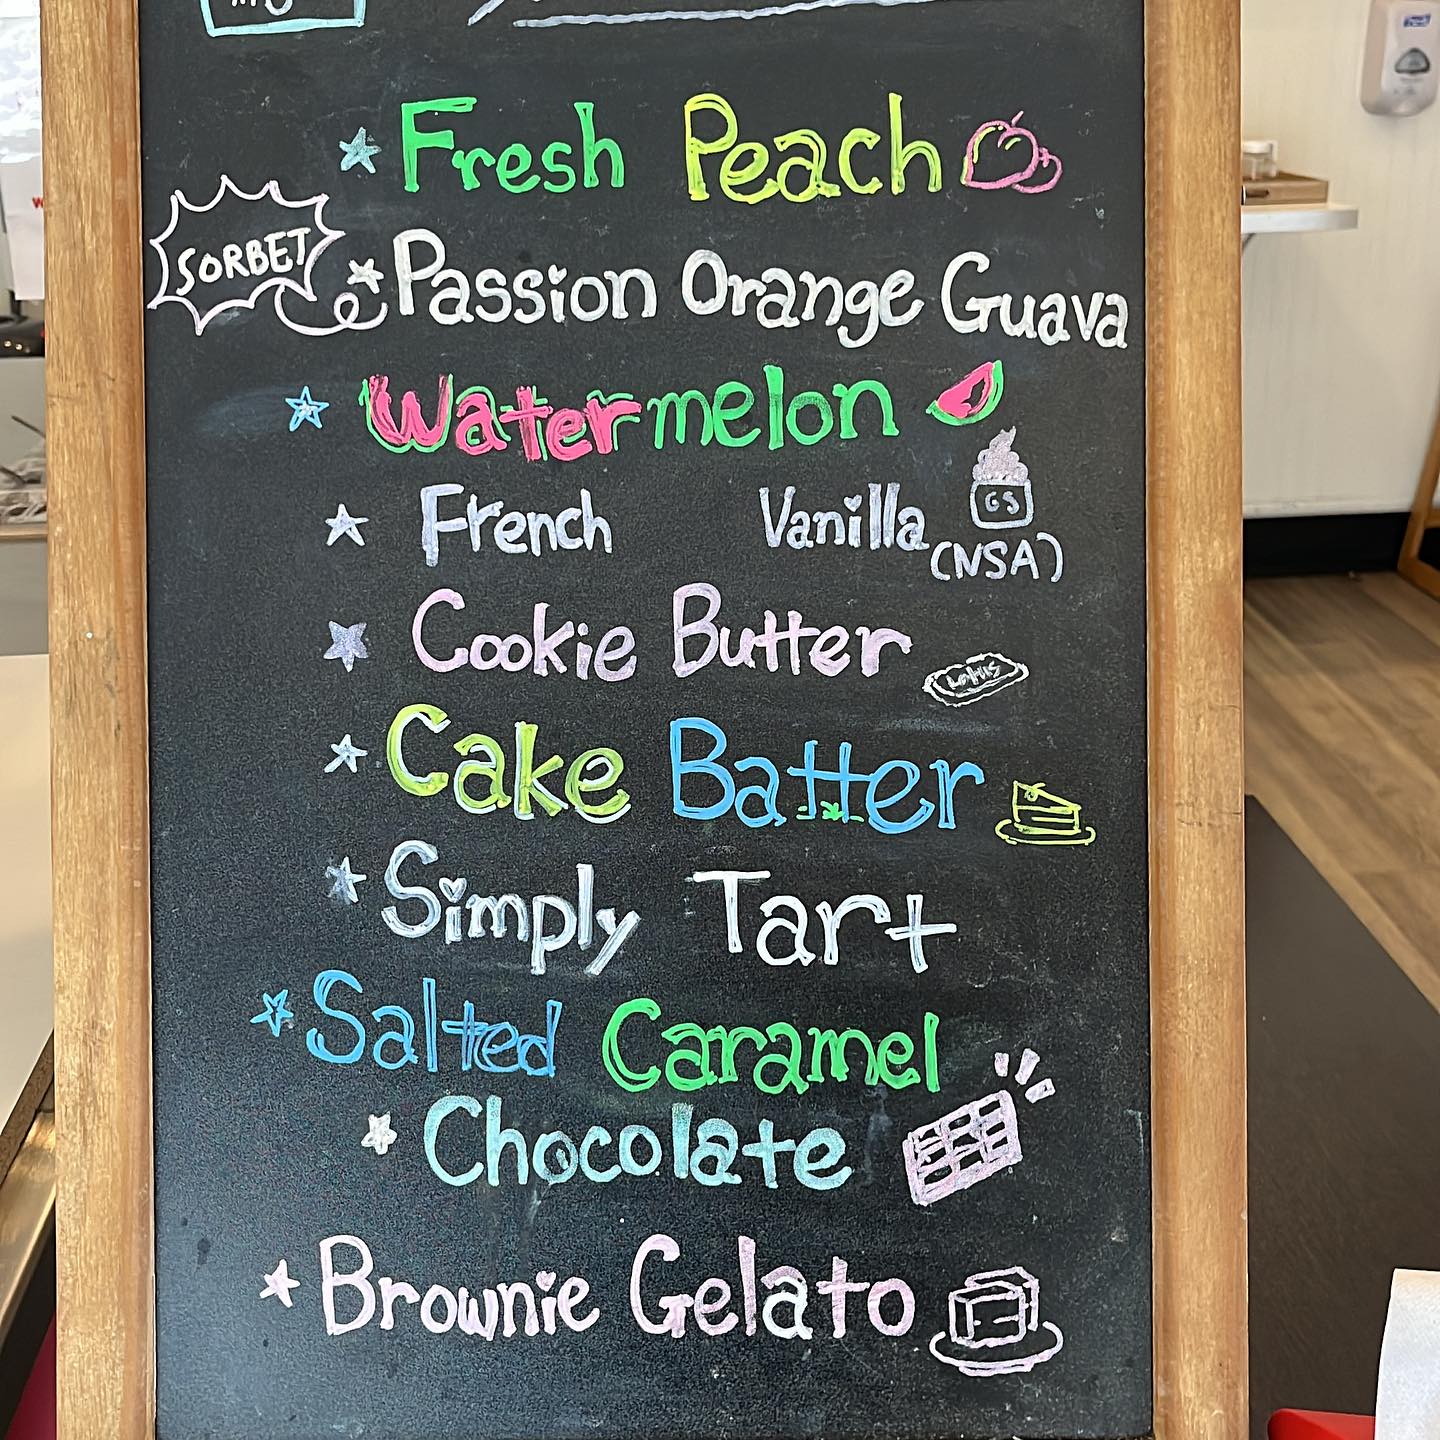 Fresh Peach
SORBET
Passion Orange Guava
Watermelon
French Vanilla
GS
(NSA)
Cookie Butter
Lotus
Cake Batter
Simply Tart
Salted Caramel
Chocolate
Brownie Gelato